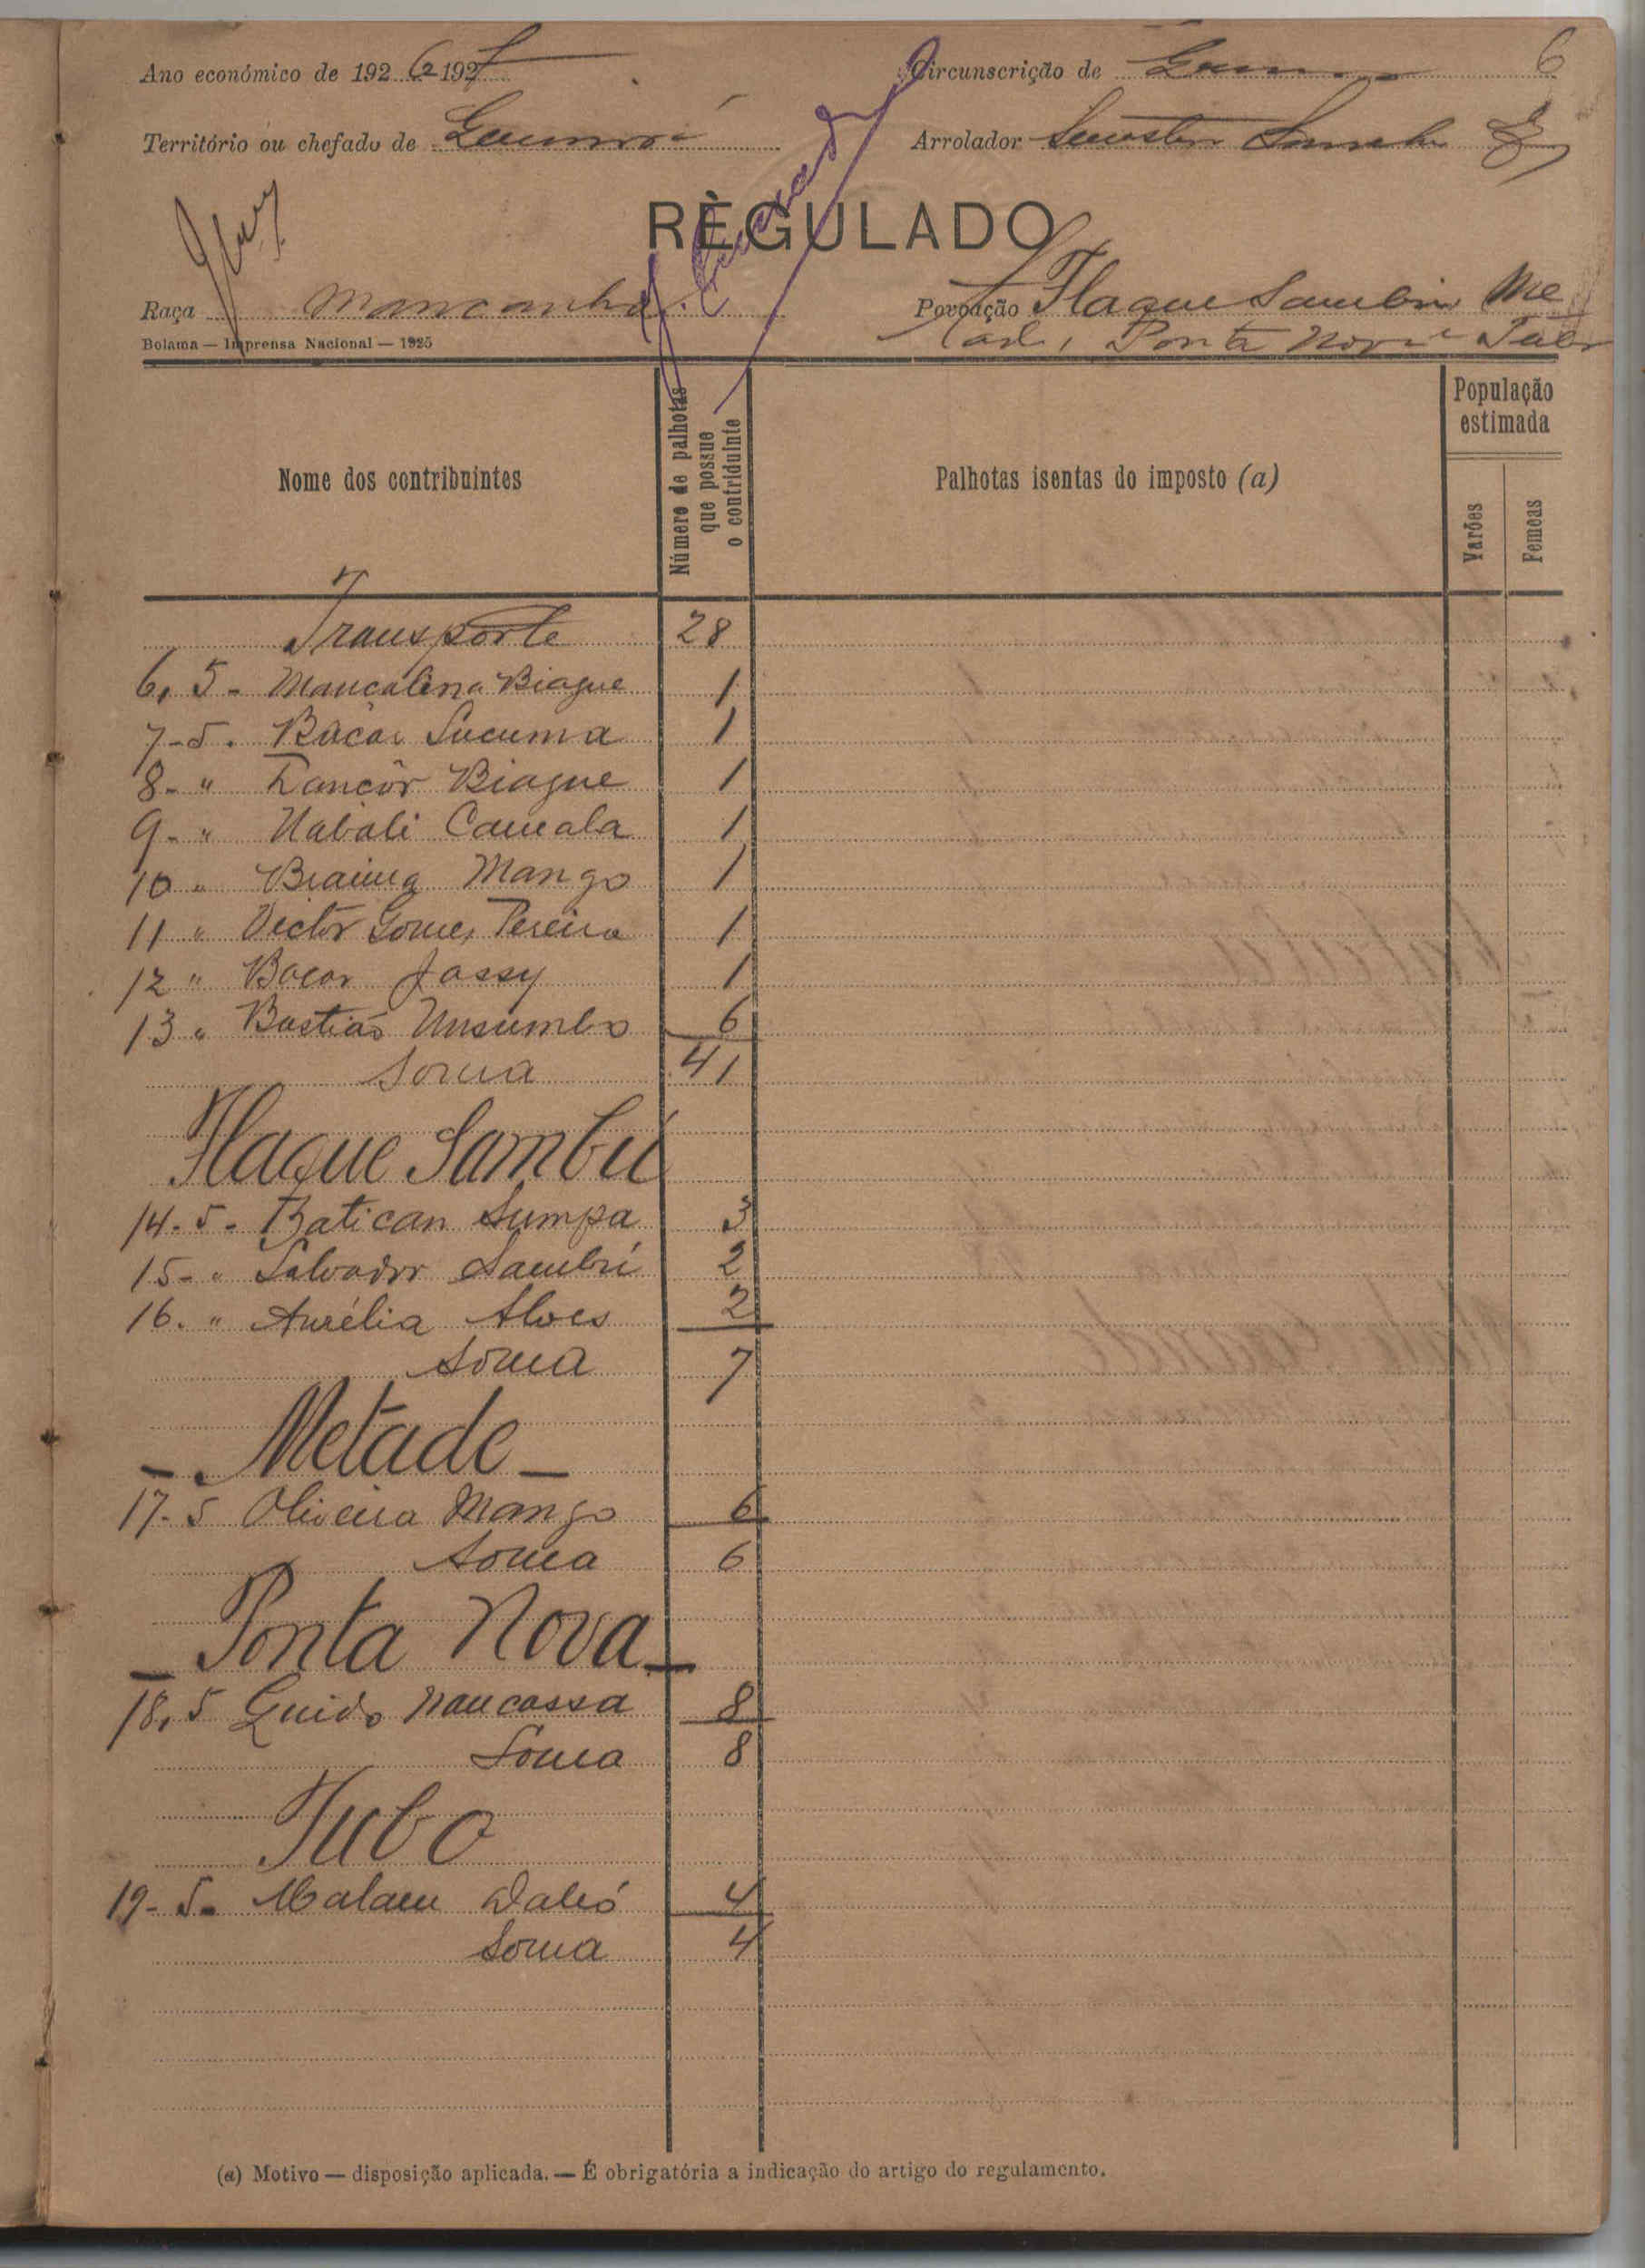 Ano económico de 1926 a 1927
Circunscrição de
6
Território ou chefado de
Arrolador
REGULADO
Raça Mancanha
Povoação Flaque Sambú Me
tade, Ponta Nova e Tubo
Bolama — Imprensa Nacional — 1925
Nome dos contribuintes
Número de palhotas que possue o contriduinte
Palhotas isentas do imposto (a)
População estimada
Varões
Femeas
Transporte 28
6, 5 - Mancalina Biague 1
7 - 5 . Bacar Sucuma 1
8 - " Lancôr Biague 1
9 - " Nabali Camala 1
10 " Mango 1
11 " Victor Gomes Pereira 1
12 " Bacar Jassy 1
13 " Bastiás Unsumbo 6
Soma 41
Flaque Sambú
14 - 5 - Batican Sumpa 3
15 - " Salvador Sambú 2
16 . " Aurélia Alves 2
Soma 7
- Metade -
17 - 5 Oliveira Mango 6
Soma 6
- Ponta Nova -
18, 5 Guido Nancassa 8
Soma 8
Tubo
19 - 5 - Malam 4
Soma 4
(a) Motivo — disposição aplicada. — É obrigatória a indicação do artigo do regulamento.